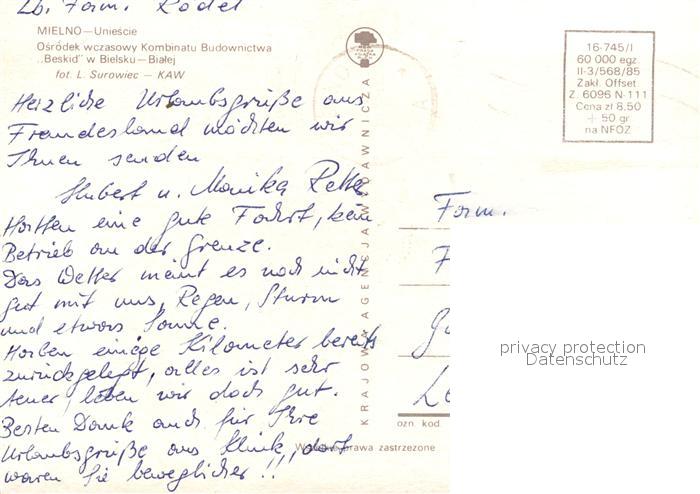 Lb. Fam. Rödel
MIELNO—Unieście
Ośrodek wczasowy Kombinatu Budownictwa
„Beskid” w Bielsku—Białej
fot. L. Surowiec — KAW
Herzliche Urlaubsgrüße aus
Freundesland möchten wir
Ihnen senden
Hubert u. Monika
Hatten eine gute Fahrt, kein
Betrieb an der Grenze.
Das Wetter meint es noch nicht
gut mit uns, Regen, Sturm
und etwas Sonne.
Haben einige Kilometer bereits
zurückgelegt, alles ist sehr
teuer, leben wir doch gut.
Besten Dank auch für Ihre
Urlaubsgrüße aus Klink, dort
waren Sie beweglicher!!
KRAJOWA AGENCJA WYDAWNICZA
16-745/I
60 000 egz.
II-3/568/85
Zakł. Offset.
Z. 6096 N-111
Cena zł 8,50
+ 50 gr
na NFOZ
Fam.
F
Le
ozn. kod.
prawa zastrzeżone
privacy protection
Datenschutz